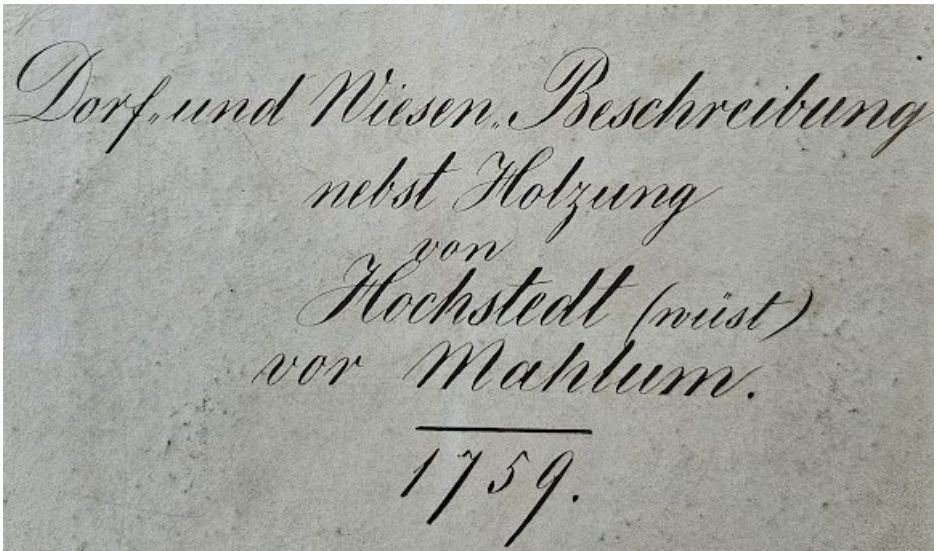 Dorf- und Wiesen-Beschreibung
nebst Holzung
von
Hochstedt (wüst)
vor Mahlum.
1759.